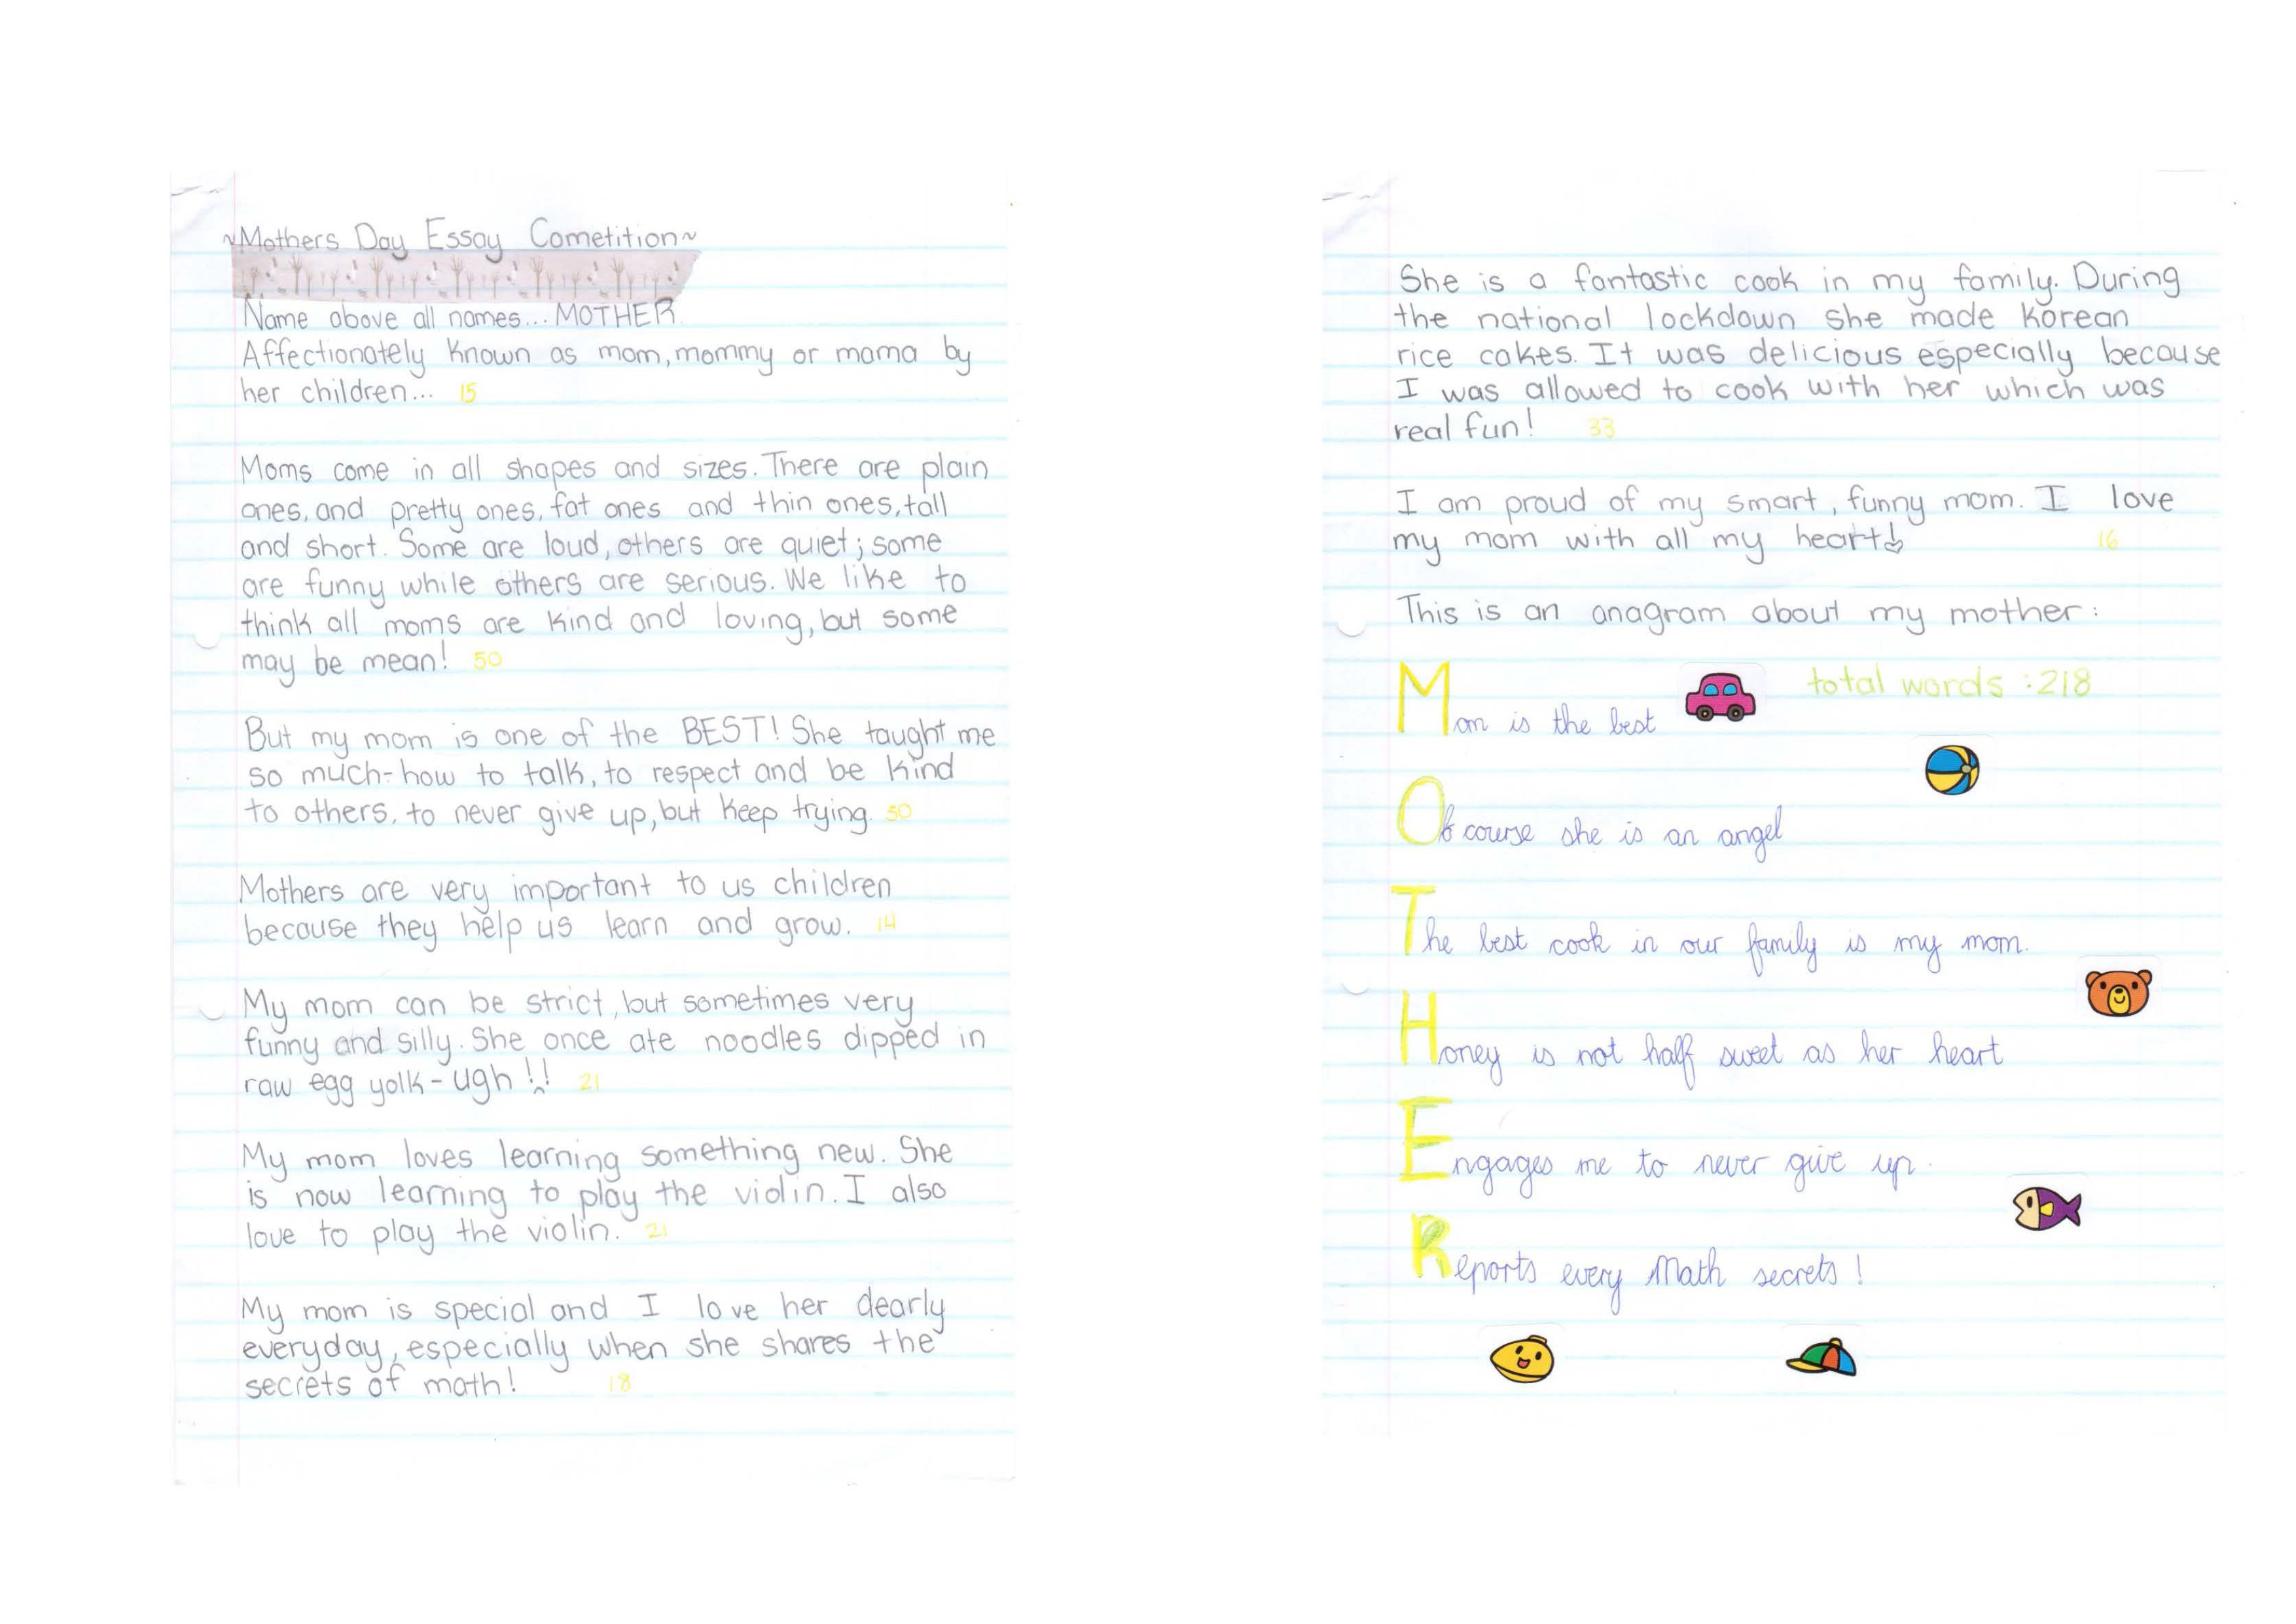 ~Mothers Day Essay Cometition~
Name above all names... MOTHER
Affectionately known as mom, mommy or mama by
her children... 15
Moms come in all shapes and sizes. There are plain
ones, and pretty ones, fat ones and thin ones, tall
and short. Some are loud, others are quiet; some
are funny while others are serious. We like to
think all moms are kind and loving, but some
may be mean! 50
But my mom is one of the BEST! She taught me
so much-how to talk, to respect and be kind
to others, to never give up, but keep trying. 30
Mothers are very important to us children
because they help us learn and grow. 14
My mom can be strict, but sometimes very
funny and silly. She once ate noodles dipped in
raw egg yolk - ugh!! 21
My mom loves learning something new. She
is now learning to play the violin. I also
love to play the violin. 21
My mom is special and I love her dearly
everyday, especially when she shares the
secrets of math! 18
She is a fantastic cook in my family. During
the national lockdown she made Korean
rice cakes. It was delicious especially because
I was allowed to cook with her which was
real fun! 33
I am proud of my smart, funny mom. I love
my mom with all my heart! 16
This is an anagram about my mother:
total words : 218
Mom is the best
Of course she is an angel
The best cook in our family is my mom.
Honey is not half sweet as her heart
Engages me to never give up.
Reports every Math secrets!